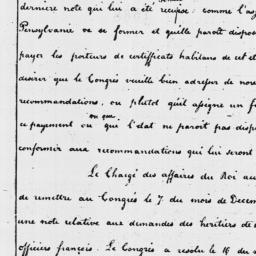 derniere note qui lui a été remise. comme l'as
Pensylvanie va se former et qu'elle paroît dispos
payer les porteurs de certificats habitans de cet ét
desirer que le Congrès veuille bien adresser de nouv
recommandations, ou plutot qu'il assigne un f
ou que
ce payement ou qui l'état ne paroît pas disp
conformer aux recommandations qui lui seront
Le Chargé des affaires du Roi au
de remettre au Congrés le 7. du mois de Decem
une note relative aux demandes des heritiers de
officiers françois. Le Congrès a resolu le 16 du